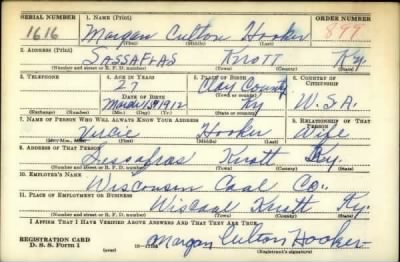 SERIAL NUMBER 1. NAME (Print) ORDER NUMBER
1616 Morgan Culton Hooker 899
(First) (Middle) (Last)
2. ADDRESS (Print)
SASSAFRAS Knott Ky.
(Number and street or R. F. D. number) (Town) (County) (State)
3. TELEPHONE 4. AGE IN YEARS 5. PLACE OF BIRTH 6. COUNTRY OF CITIZENSHIP
Clay County
(Town or county)
DATE OF BIRTH
March 15 1912 Ky U.S.A.
(Exchange) (Number) (Mo.) (Day) (Yr.) (State or country)
7. NAME OF PERSON WHO WILL ALWAYS KNOW YOUR ADDRESS 8. RELATIONSHIP OF THAT PERSON
Hooker Wife
(Mr., Mrs., Miss) (First) (Middle) (Last)
9. ADDRESS OF THAT PERSON
Sassafras Knott Ky.
(Number and street or R. F. D. number) (Town) (County) (State)
10. EMPLOYER'S NAME
Wisconsin Coal Co.
11. PLACE OF EMPLOYMENT OR BUSINESS
Wiscoal Knott Ky.
(Number and street or R. F. D. number) (Town) (County) (State)
I AFFIRM THAT I HAVE VERIFIED ABOVE ANSWERS AND THAT THEY ARE TRUE.
REGISTRATION CARD
D. S. S. Form 1 (over) Morgan Culton Hooker
(Registrant's signature)